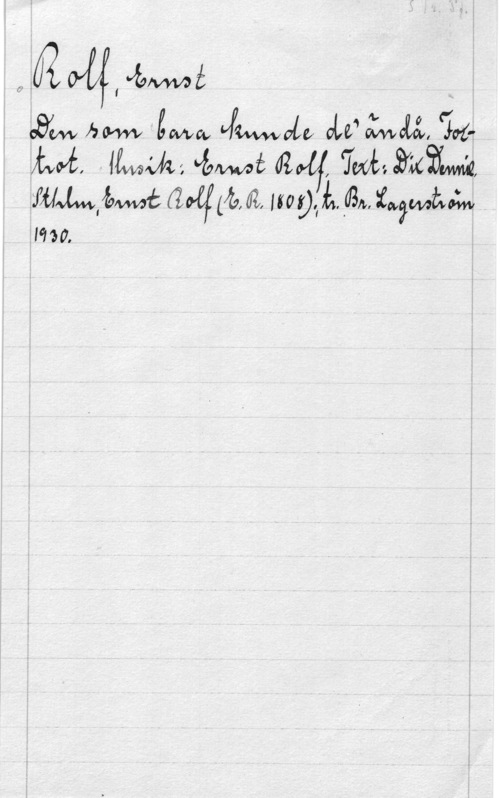 Rolf, Ernst
Den som bara kunde de' ändå. Fox-
trot. Musik: Ernst Rolf. Text: Dix Dennie.
Sthlm, Ernst Rolf (E. R. 1808); tr. Br. Lagerström
1930.